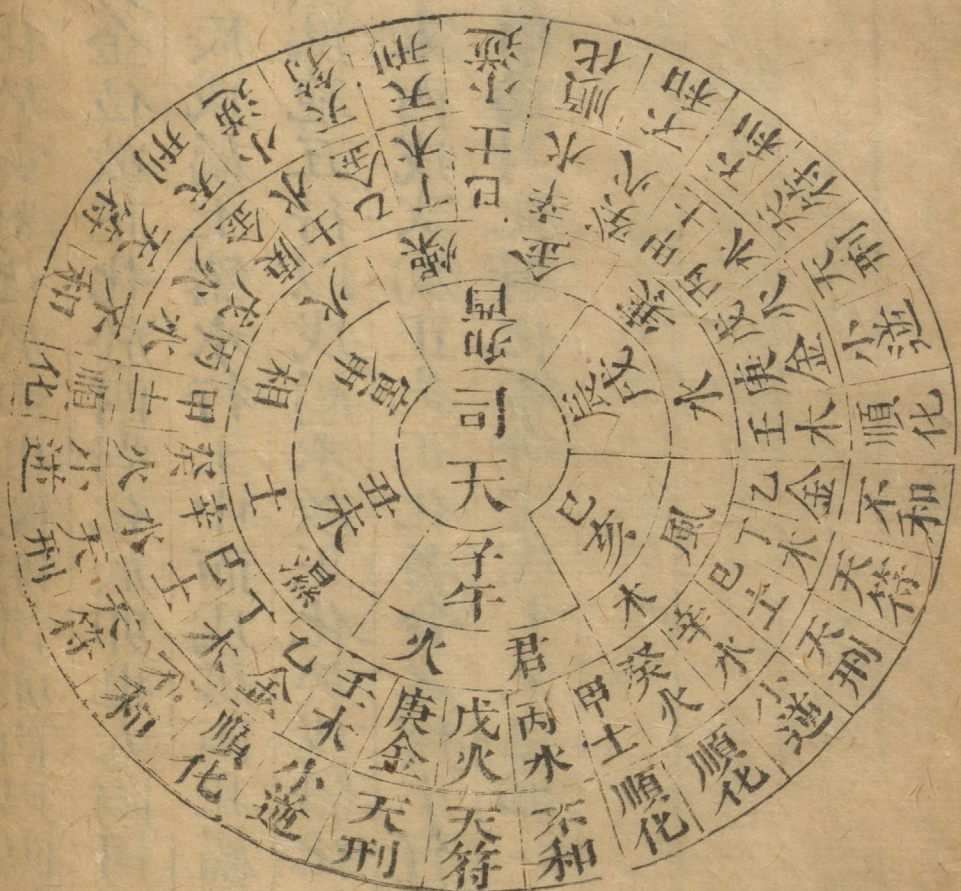 司天
子午
丑未
寅申
卯酉
辰戌
巳亥
君火
濕土
相火
燥金
寒水
風木
甲土
丙水
戊火
庚金
壬木
乙金
丁木
巳土
辛水
癸火
甲土
丙水
戊火
庚金
壬木
乙金
丁木
巳土
辛水
癸火
甲土
丙水
戊火
庚金
壬木
乙金
丁木
巳土
辛水
癸火
順化
不和
天符
天刑
小逆
順化
不和
天符
天刑
小逆
順化
不和
天符
天刑
小逆
天符
天刑
小逆
順化
不和
不和
天符
天刑
小逆
順化
不和
天符
天刑
小逆
順化